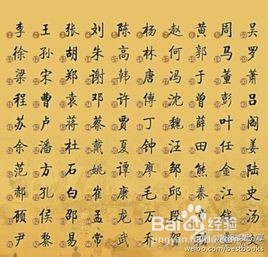 李 王 张 刘 陈 杨 赵 黄 周 吴
徐 孙 胡 朱 高 林 何 郭 马 罗
梁 宋 郑 谢 韩 唐 冯 于 董 萧
程 曹 袁 邓 许 傅 沈 曾 彭 吕
苏 卢 蒋 蔡 贾 丁 魏 薛 叶 阎
余 潘 杜 戴 夏 钟 汪 田 任 姜
范 方 石 姚 谭 廖 邹 熊 金 陆
郝 孔 白 崔 康 毛 邱 秦 江 史
顾 侯 邵 孟 龙 万 段 钱 汤
尹 黎 易 常 武 乔